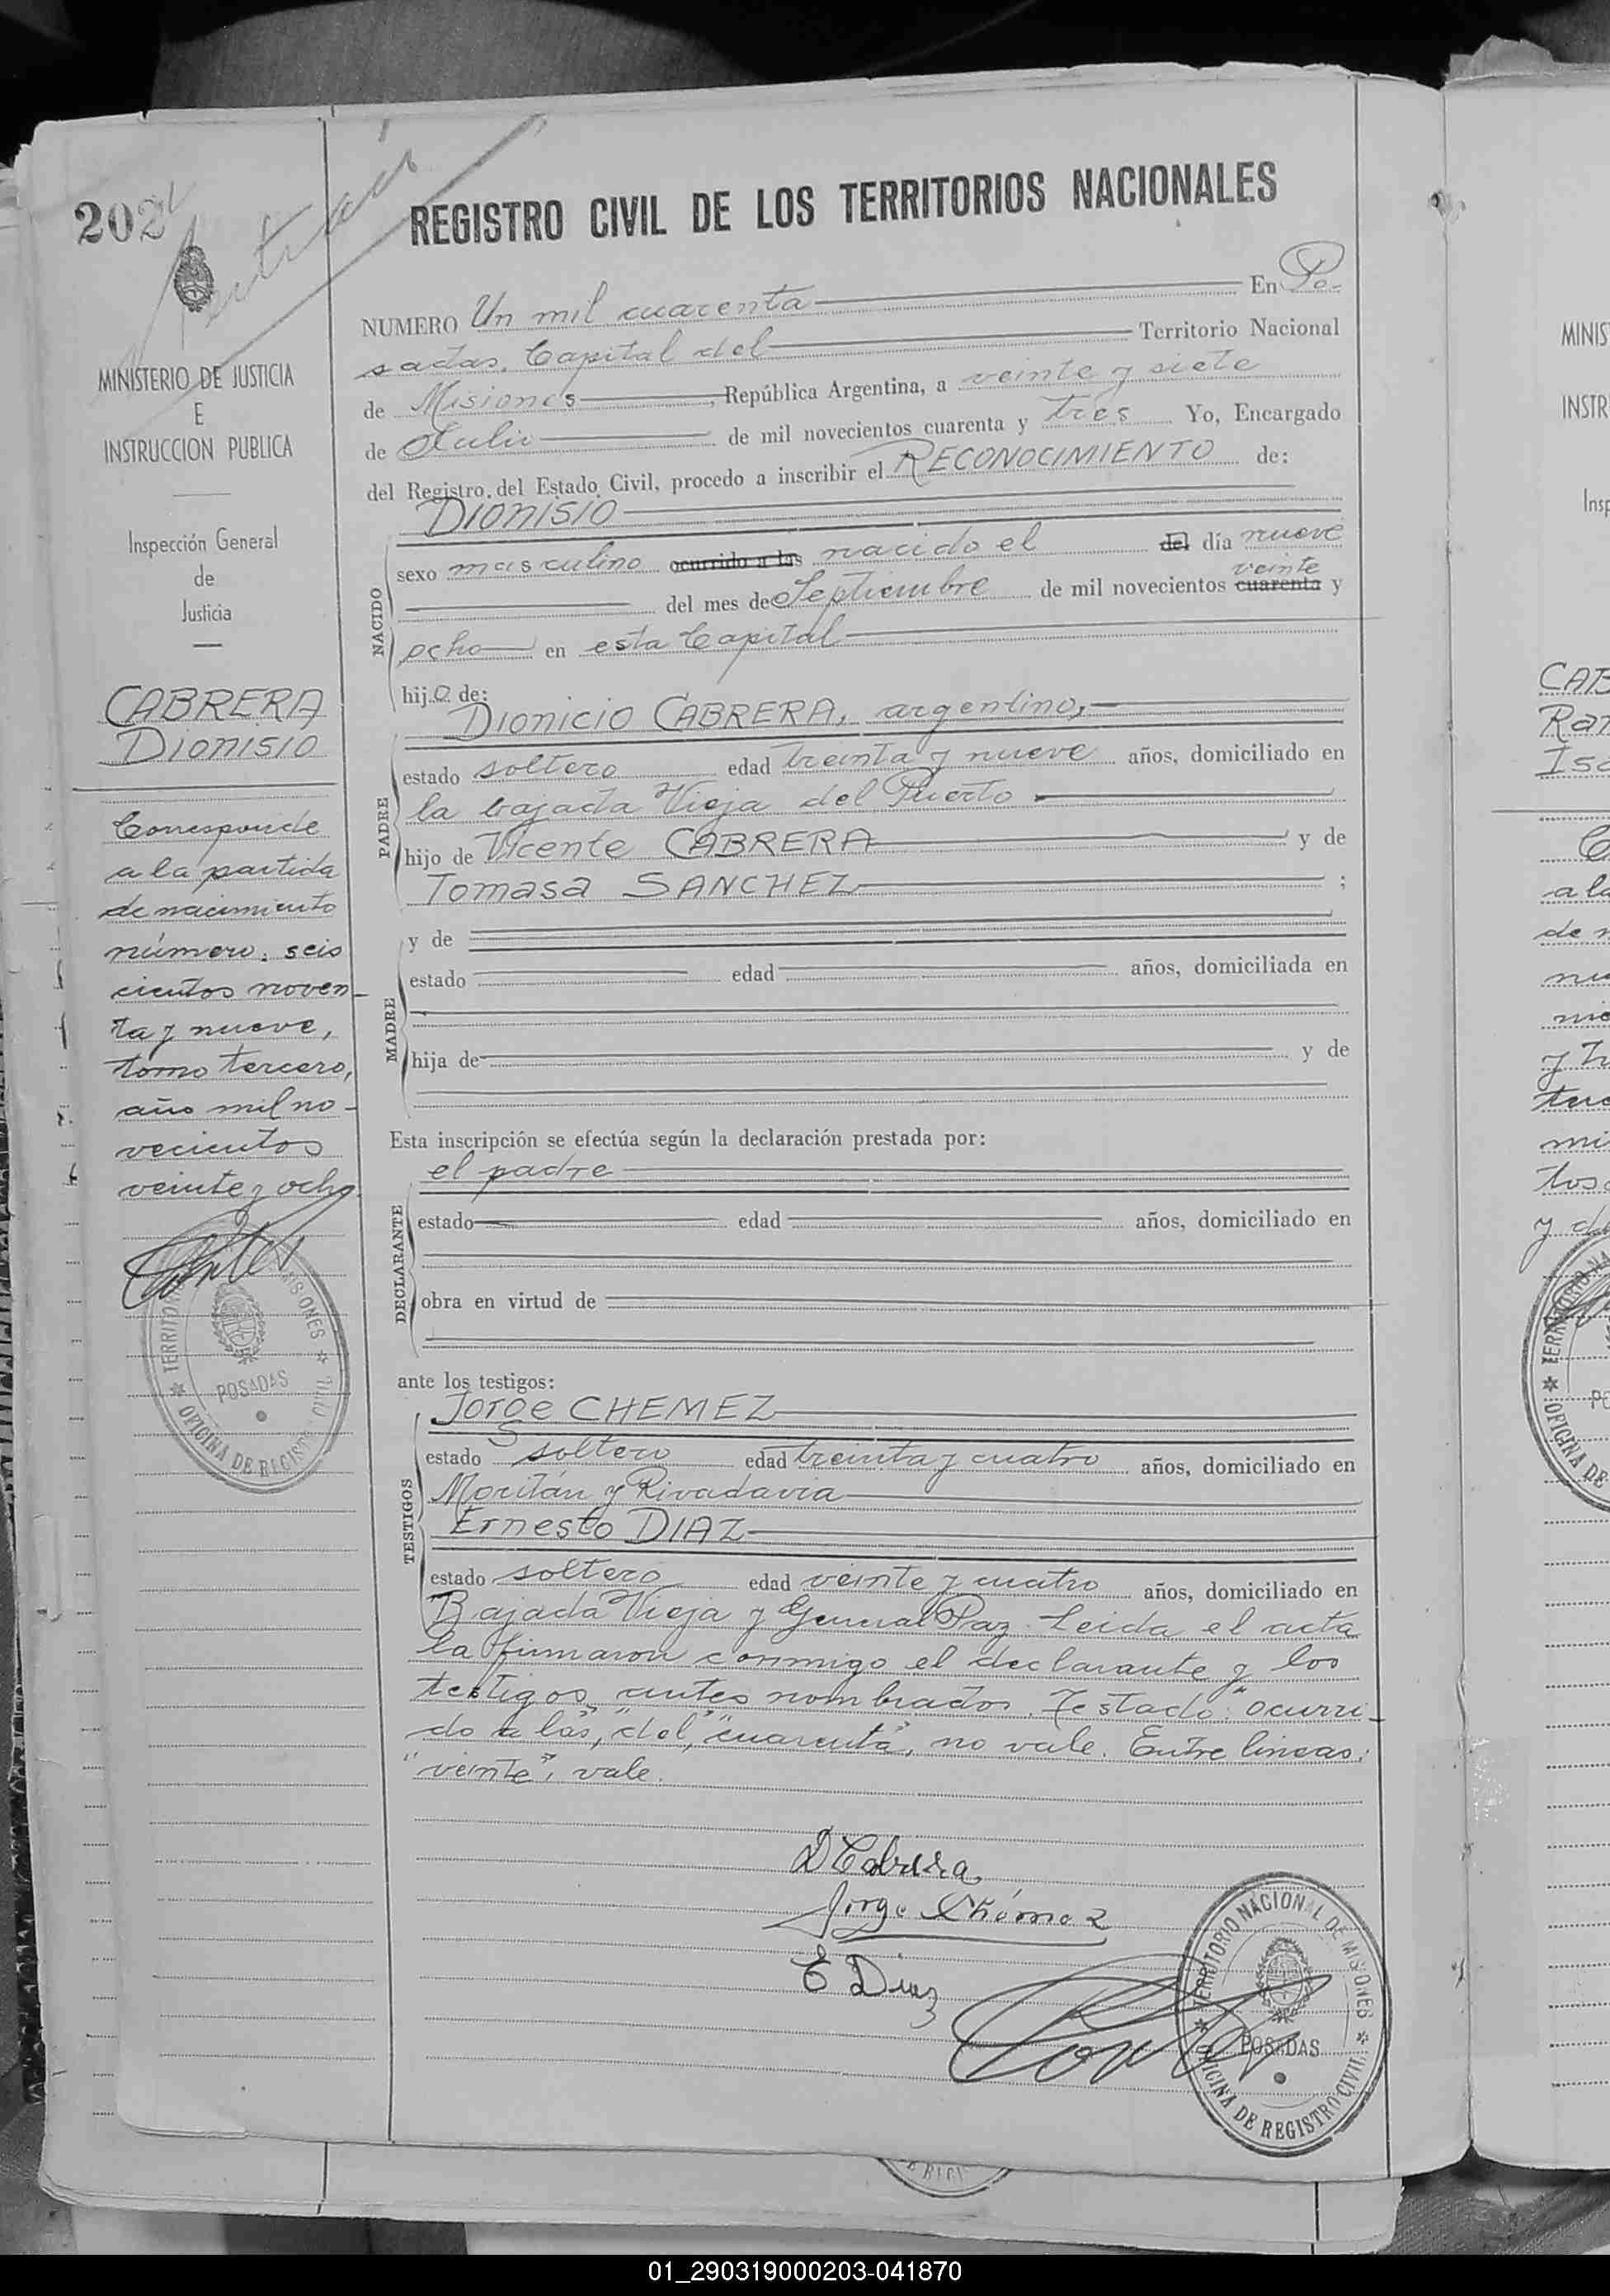 202
REGISTRO CIVIL DE LOS TERRITORIOS NACIONALES
MINISTERIO DE JUSTICIA
E
INSTRUCCION PUBLICA
Inspección General
de
Justicia
CABRERA
Dionisio
Corresponde
a la partida
de nacimiento
número: seis
cientos noven-
ta y nueve,
tomo tercero,
año mil no-
vecientos
veinte y ocho
TERRITORIO MISIONES
POSADAS
OFICINA DE REGISTRO CIVIL
NUMERO Un mil cuarenta En Po-
sadas, Capital del Territorio Nacional
de Misiones, República Argentina, a veinte y siete
de Julio de mil novecientos cuarenta y tres Yo, Encargado
del Registro del Estado Civil, procedo a inscribir el RECONOCIMIENTO de:
Dionisio
NACIDO
sexo masculino ocurrido a las nacido el del día nueve
veinte
del mes de Septiembre de mil novecientos cuarenta y
ocho en esta Capital
hijo de:
Dionicio CABRERA, argentino,
PADRE
estado soltero edad treinta y nueve años, domiciliado en
la bajada Vieja del Puerto
hijo de Vicente CABRERA y de
Tomasa SANCHEZ ;
MADRE
y de
estado edad años, domiciliada en
hija de y de
Esta inscripción se efectúa según la declaración prestada por:
el padre
DECLARANTE
estado edad años, domiciliado en
obra en virtud de
ante los testigos:
Jorge CHEMEZ
TESTIGOS
estado soltero edad treinta y cuatro años, domiciliado en
Moritán y Rivadavia
Ernesto DIAZ
estado soltero edad veinte y cuatro años, domiciliado en
Bajada Vieja y General Paz. Leida el acta
la firmaron conmigo el declarante y los
testigos antes nombrados. Testado: "ocurri-
do a las", "del", "cuarenta", no vale. Entre lineas:
"veinte", vale.
D Cabrera
Jorge Chémez
E Diaz
TERRITORIO NACIONAL DE MISIONES
POSADAS
OFICINA DE REGISTRO CIVIL
MINIS
INSTR
Insp
CAB
Ran
Isa
a la
de n
nu
y tr
mi
tos
01_290319000203-041870